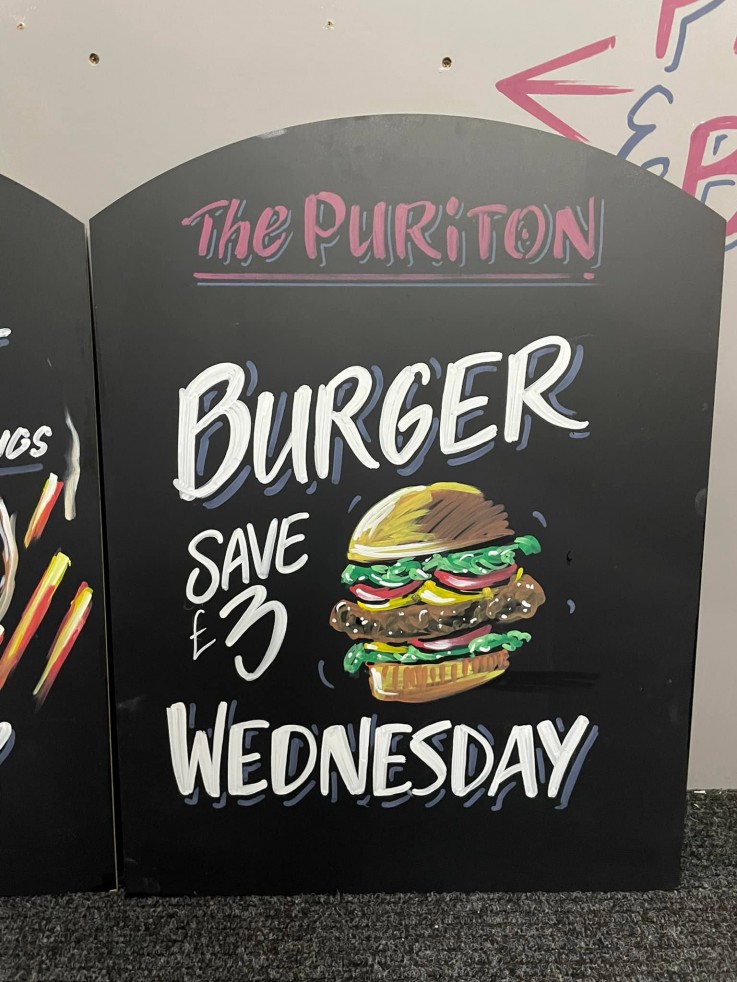 The PURiTON
BURGER
SAVE
£3
WEDNESDAY